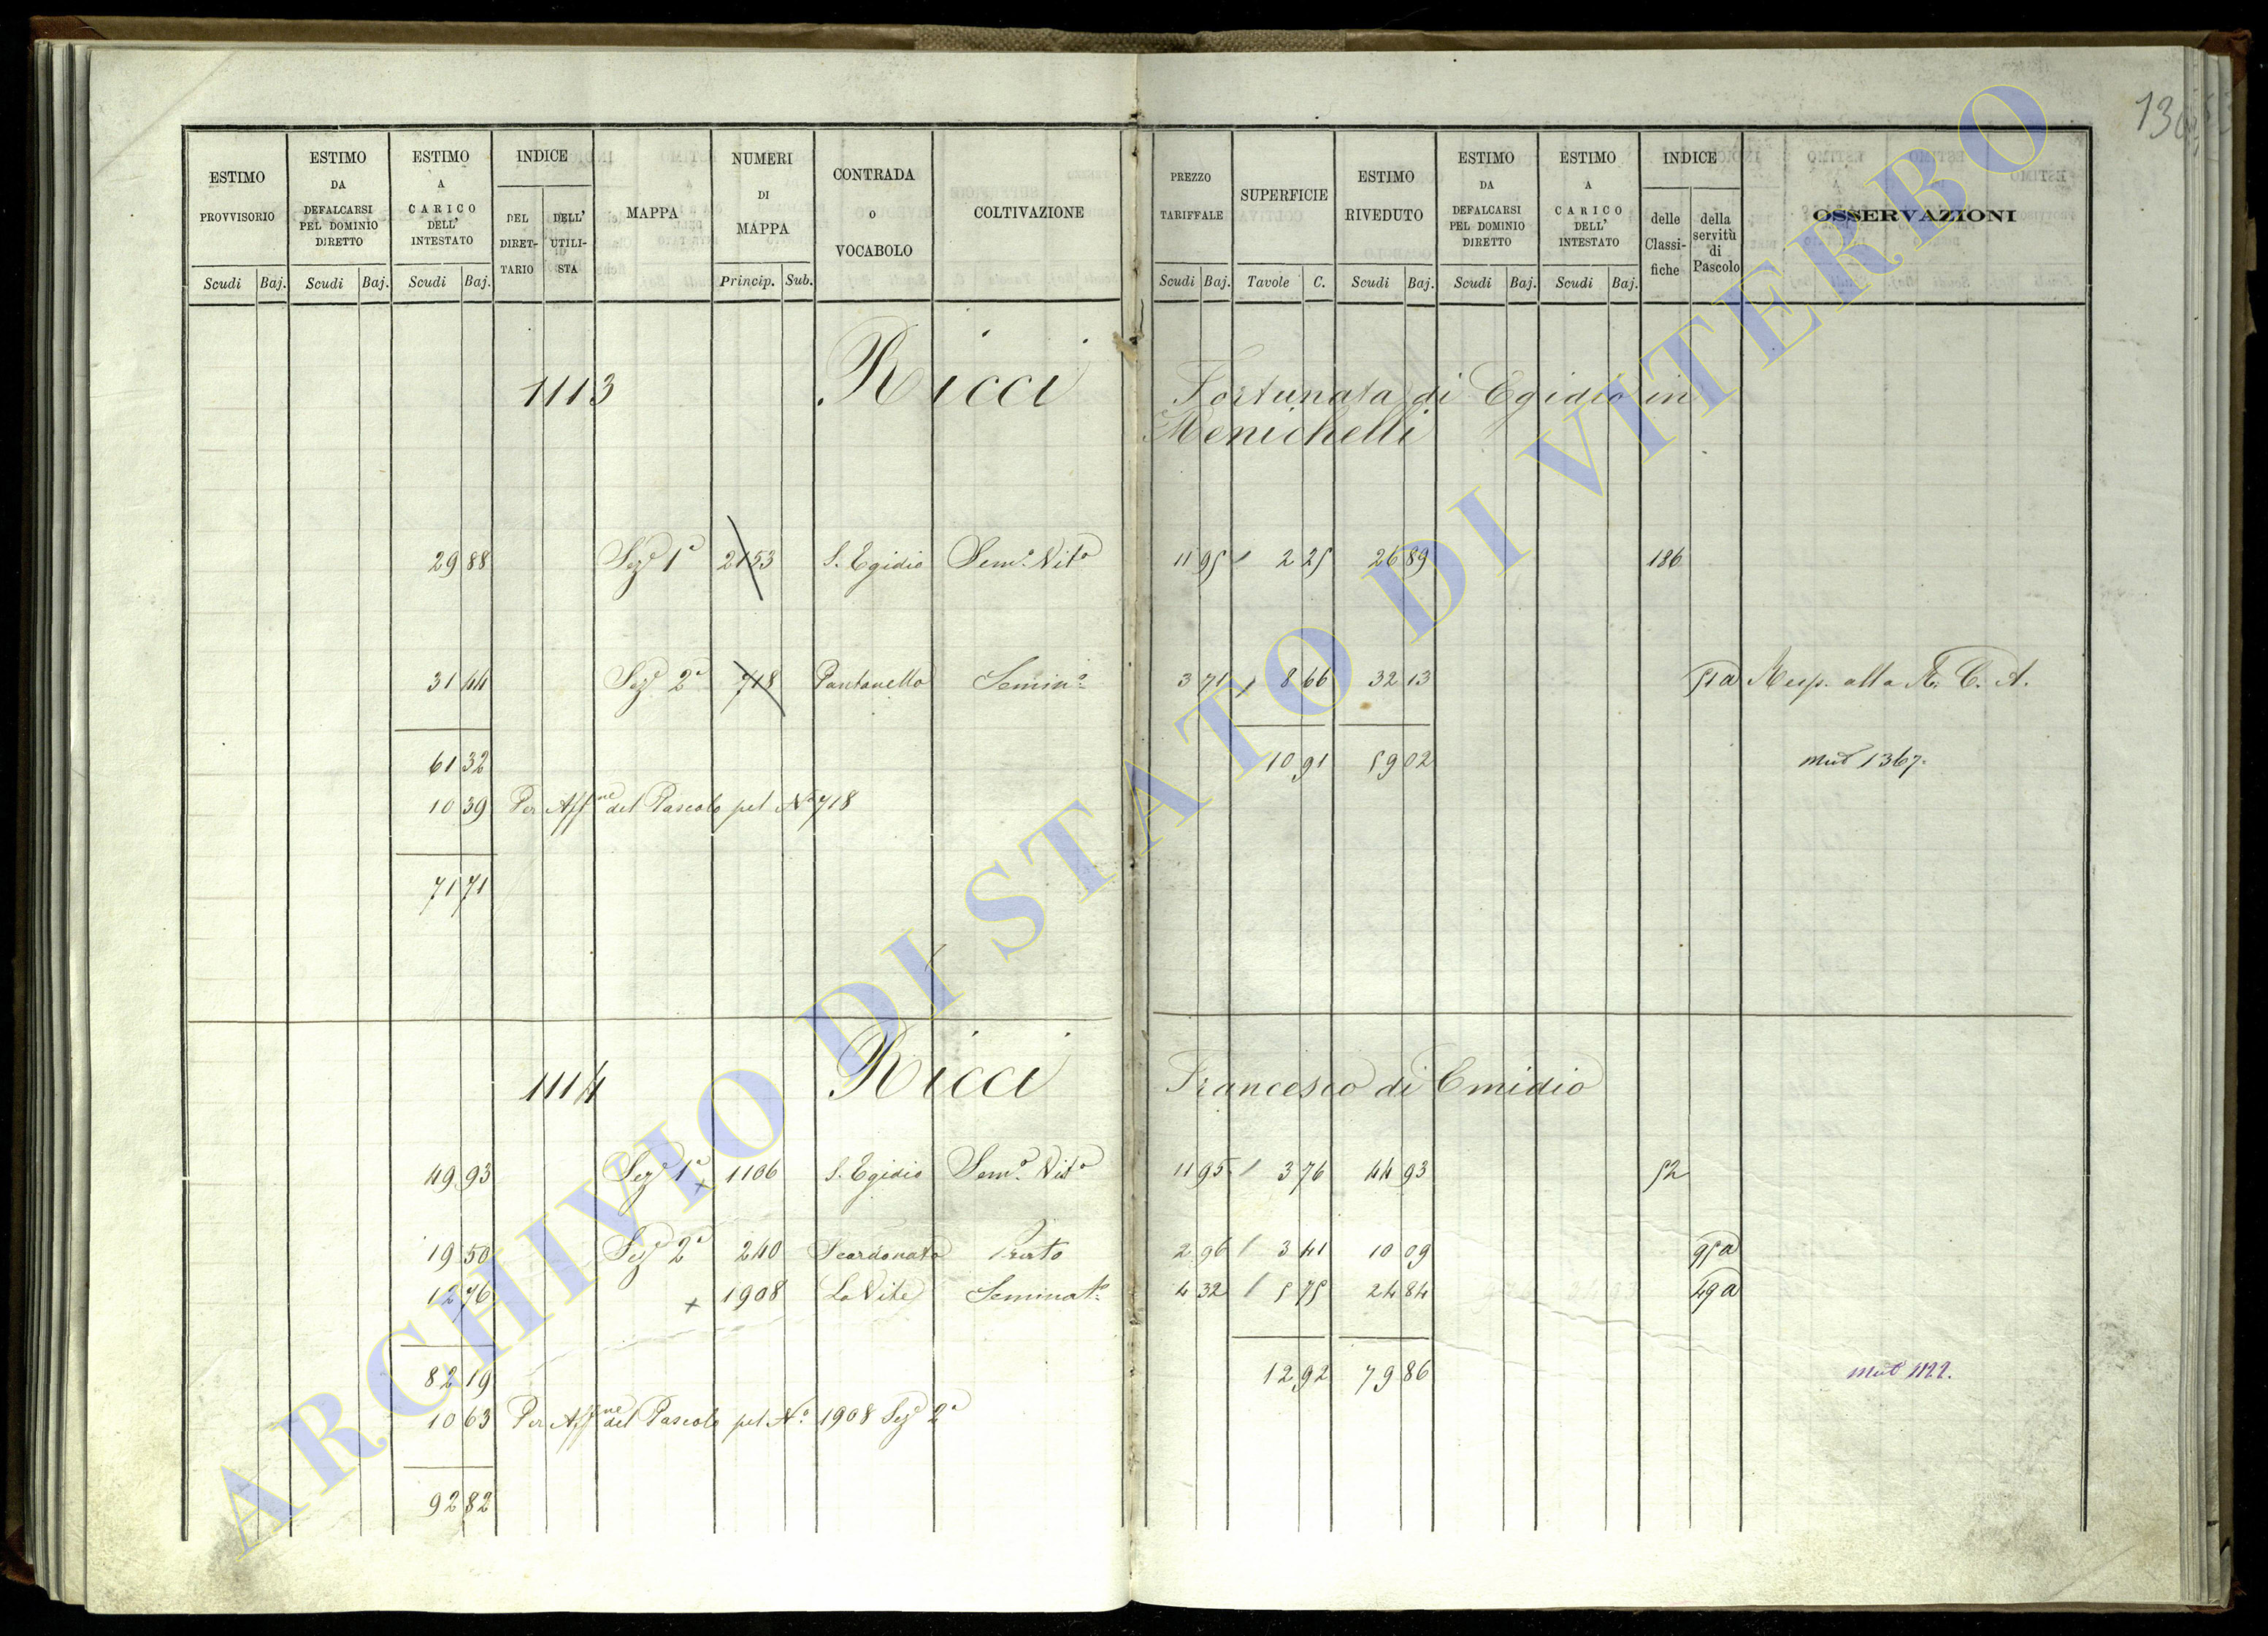 130
ESTIMO PROVVISORIO Scudi Baj.
ESTIMO DA DEFALCARSI PEL DOMINIO DIRETTO Scudi Baj.
ESTIMO A CARICO DELL' INTESTATO Scudi Baj.
INDICE DEL DIRET-TARIO DELL' UTILI-STA
MAPPA
NUMERI DI MAPPA Princip. Sub.
CONTRADA O VOCABOLO
COLTIVAZIONE
PREZZO TARIFFALE Scudi Baj.
SUPERFICIE Tavole C.
ESTIMO RIVEDUTO Scudi Baj.
ESTIMO DA DEFALCARSI PEL DOMINIO DIRETTO Scudi Baj.
ESTIMO A CARICO DELL' INTESTATO Scudi Baj.
INDICE delle Classi-fiche della servitù di Pascolo
OSSERVAZIONI
1113 Ricci Fortunata di Egidio in
Menichelli
29 88 Sezᵉ 1ᵃ 2153 S. Egidio Semᵒ Vitᵒ 11 95 2 25 26 89 186
31 44 Sezᵉ 2ᵃ 718 Pantanello Seminᵒ 3 71 8 66 32 13 51a Resp. alla R. C. A.
61 32 10 91 59 02 Mut 1367
10 39 Per Affⁿᵉ del Pascolo pel Nᵒ 718
71 71
1114 Ricci Francesco di Emidio
49 93 Sezᵉ 1ᵃ x 1106 S. Egidio Semᵒ Vitᵒ 11 95 3 76 44 93 52
19 50 Sezᵉ 2ᵃ 240 Scardonato 2 96 3 41 10 09 95a
12 76 x 1908 La Vite Seminatᵒ 4 32 5 75 24 84 49a
82 19 12 92 79 86 Mut 1122.
10 63 Per Affⁿᵉ del Pascolo pel Nᵒ 1908 Sezᵉ 2ᵃ
92 82
ARCHIVIO DI STATO DI VITERBO